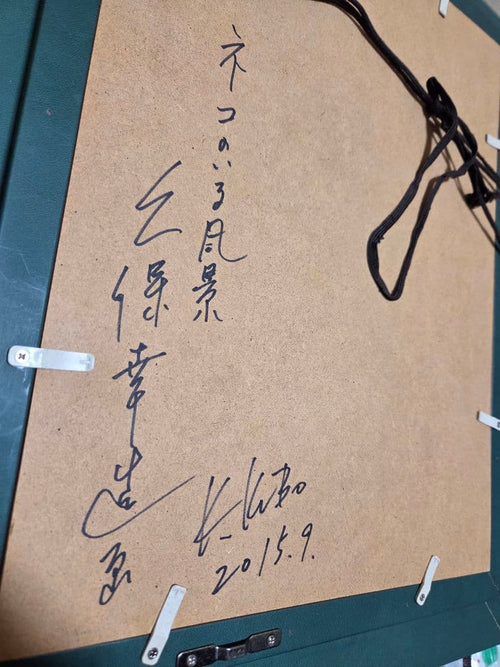 ネコのいる風景
久保幸造画
K-Kubo
2015.9.